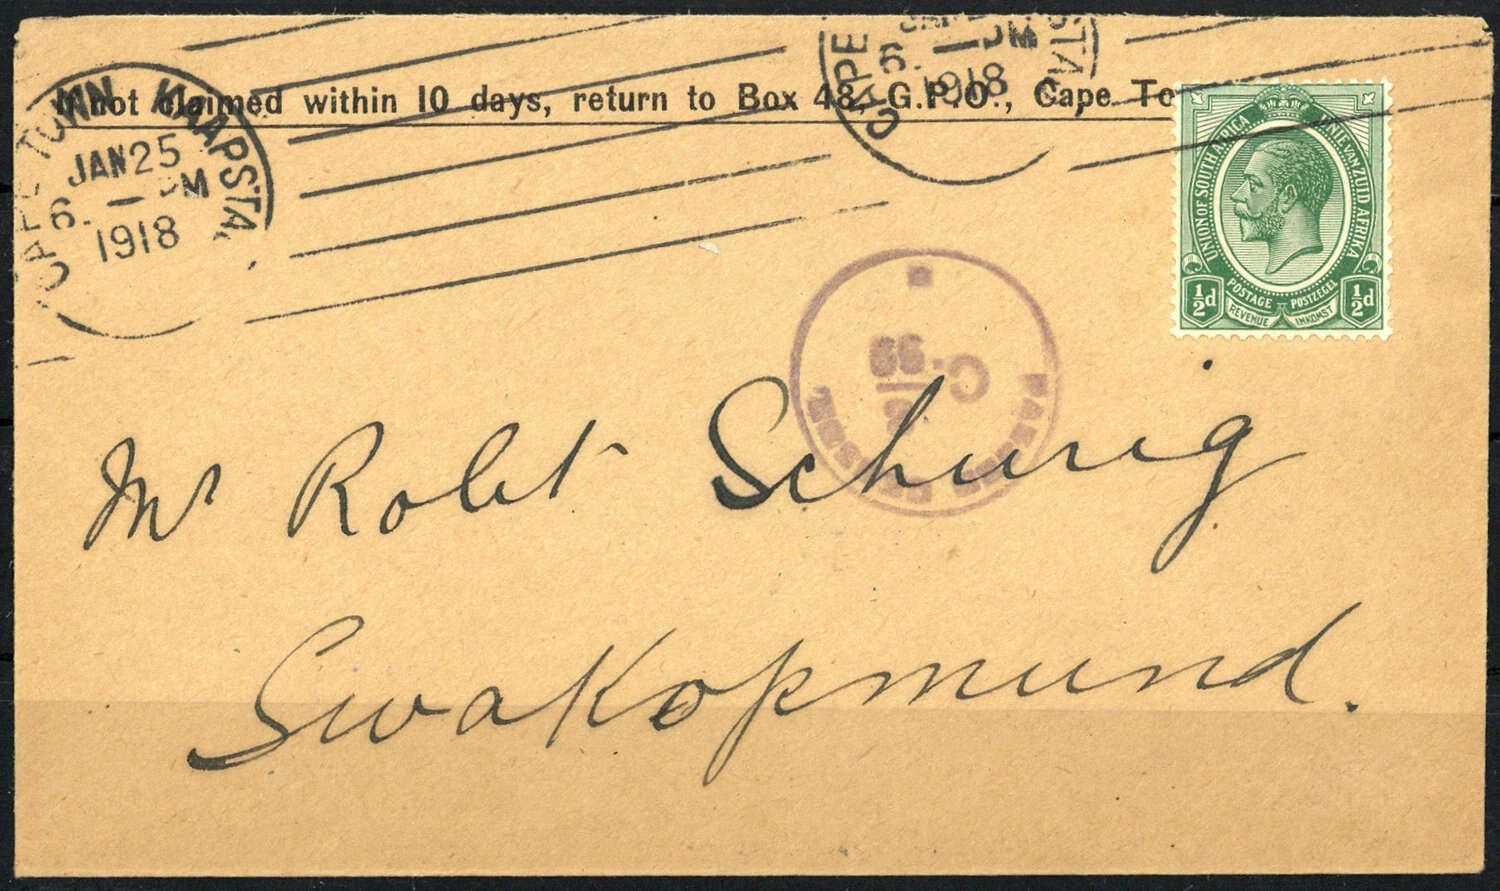 If not claimed within 10 days, return to Box 48, G.P.O., Cape To
CAPE TOWN KAAPSTA
JAN 25
6. — PM
1918
CAPE STA
JAN
6 — PM
1918
UNION OF SOUTH AFRICA UNIE VAN ZUID AFRIKA
POSTAGE POSTZEGEL
REVENUE INKOMST
½d ½d
PASSED
C. 99
Mr Robt Schurig
Swakopmund.